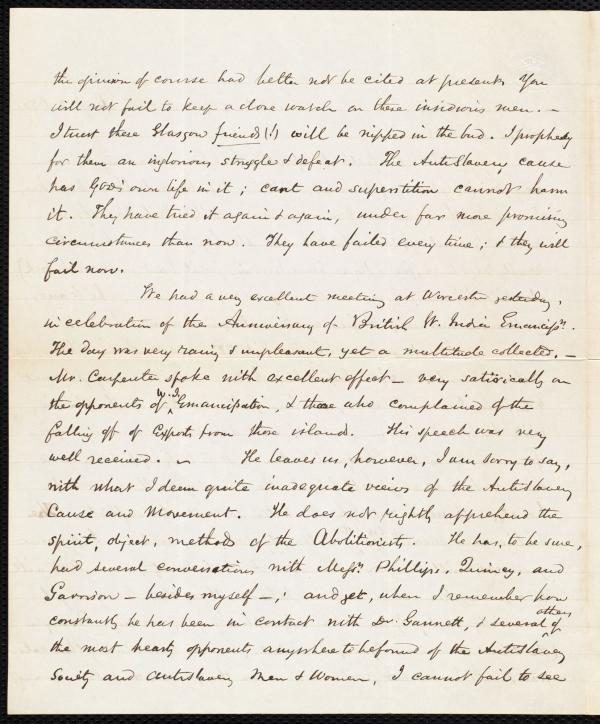 the opinion of course had better not be cited at present. You
will not fail to keep a close watch on these insidious men. –
I trust these Glasgow friends (!) will be nipped in the bud. I prophesy
for them an inglorious struggle & defeat. The Antislavery cause
has God's own life in it; cant and superstition cannot harm
it. They have tried it again & again, under far more promising
circumstances than now. They have failed every time; & they will
fail now.
We had a very excellent meeting at Worcester yesterday,
in celebration of the Anniversary of British W. India Emancipn.
The day was very rainy & unpleasant, yet a multitude collected. –
Mr. Carpenter spoke with excellent effect – very satirically on
the opponents of W. I. Emancipation, & those who complained of the
falling off of Exports from those islands. His speech was very
well received. – He leaves us, however, I am sorry to say,
with what I deem quite inadequate views of the Antislavery
Cause and Movement. He does not rightly apprehend the
spirit, object, methods of the Abolitionists. He has, to be sure,
had several conversations with Messrs. Phillips, Quincy, and
Garrison – besides myself –; and yet, when I remember how
constantly he has been in contact with Dr. Gannett, & several others of
the most hearty opponents anywhere to be found of the Antislavery
Society and Antislavery Men & Women, I cannot fail to see